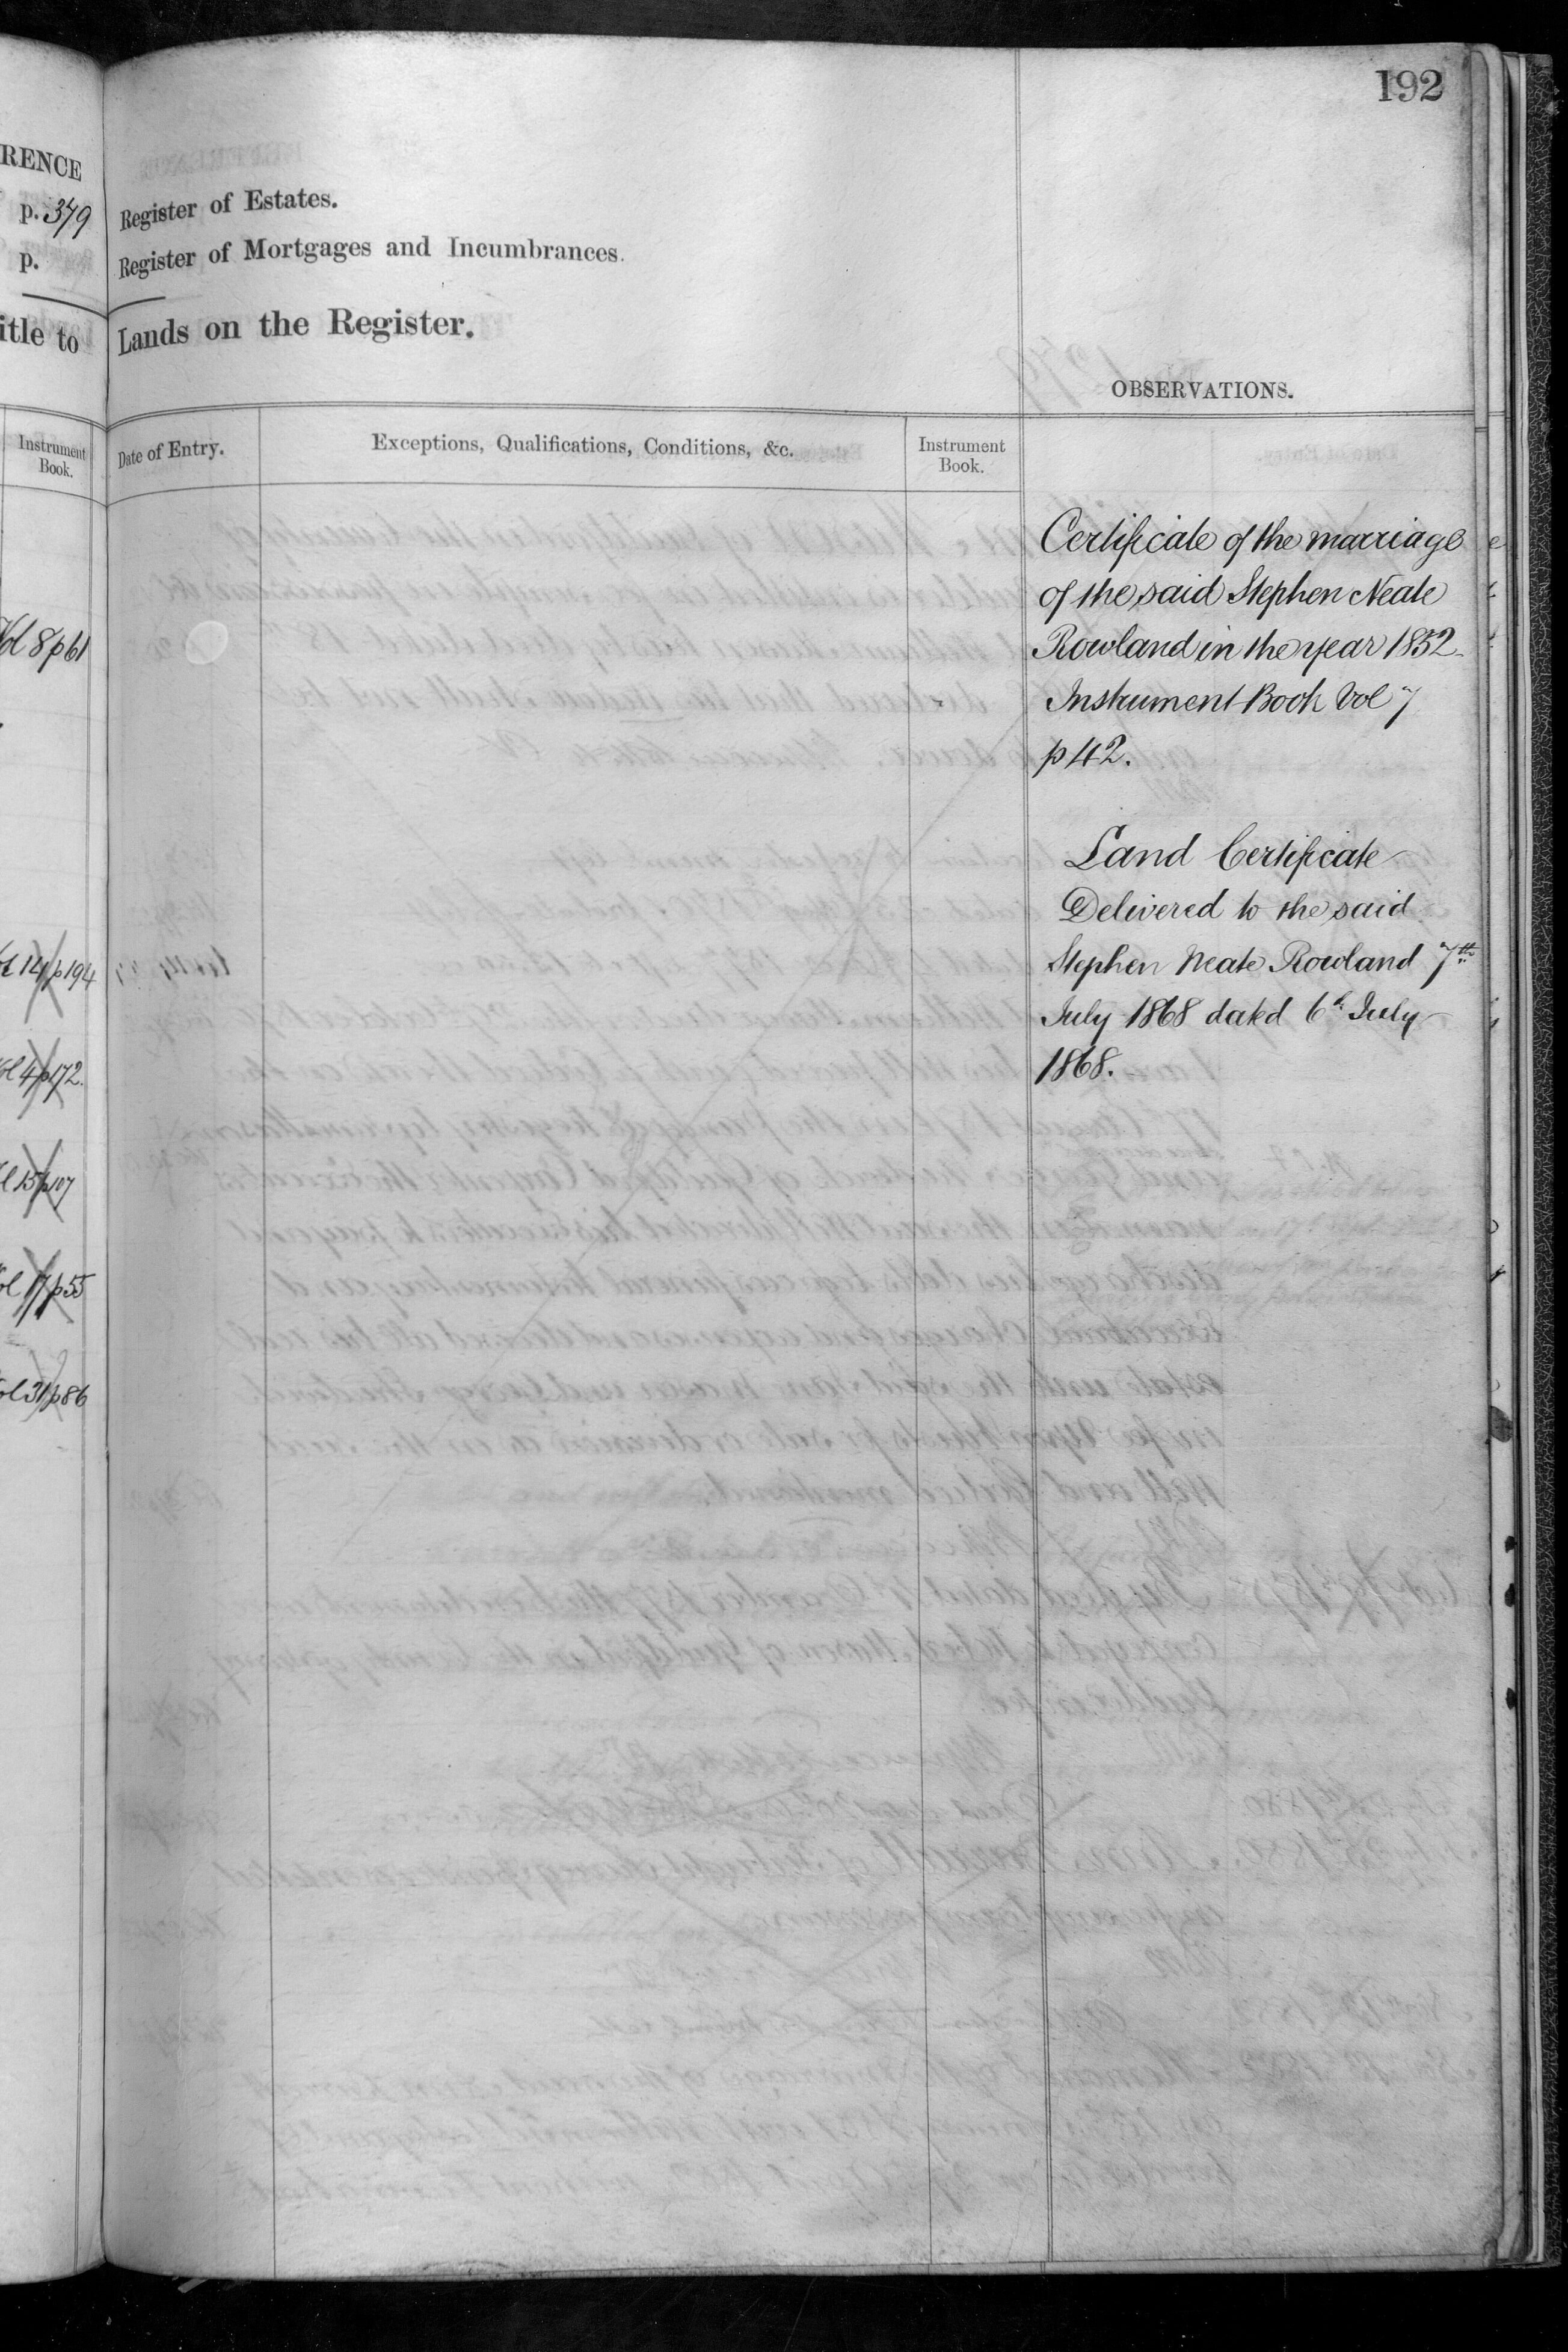 192
RENCE
p. 379
p.
itle to
Instrument
Book.
Vol 8 p 61
Vol 14 p 194
Vol 4 p 172.
Vol 15 p 107
Vol 17 p 55
Vol 31 p 86
Register of Estates.
Register of Mortgages and Incumbrances.
Lands on the Register.
OBSERVATIONS.
Date of Entry.
Exceptions, Qualifications, Conditions, &c.
Instrument
Book.
Certificate of the marriage
of the said Stephen Neate
Rowland in the year 1852.
Instrument Book Vol 7
p 42.
Land Certificate
Delivered to the said
Stephen Neate Rowland 7th
July 1868 dated 6th July
1868.